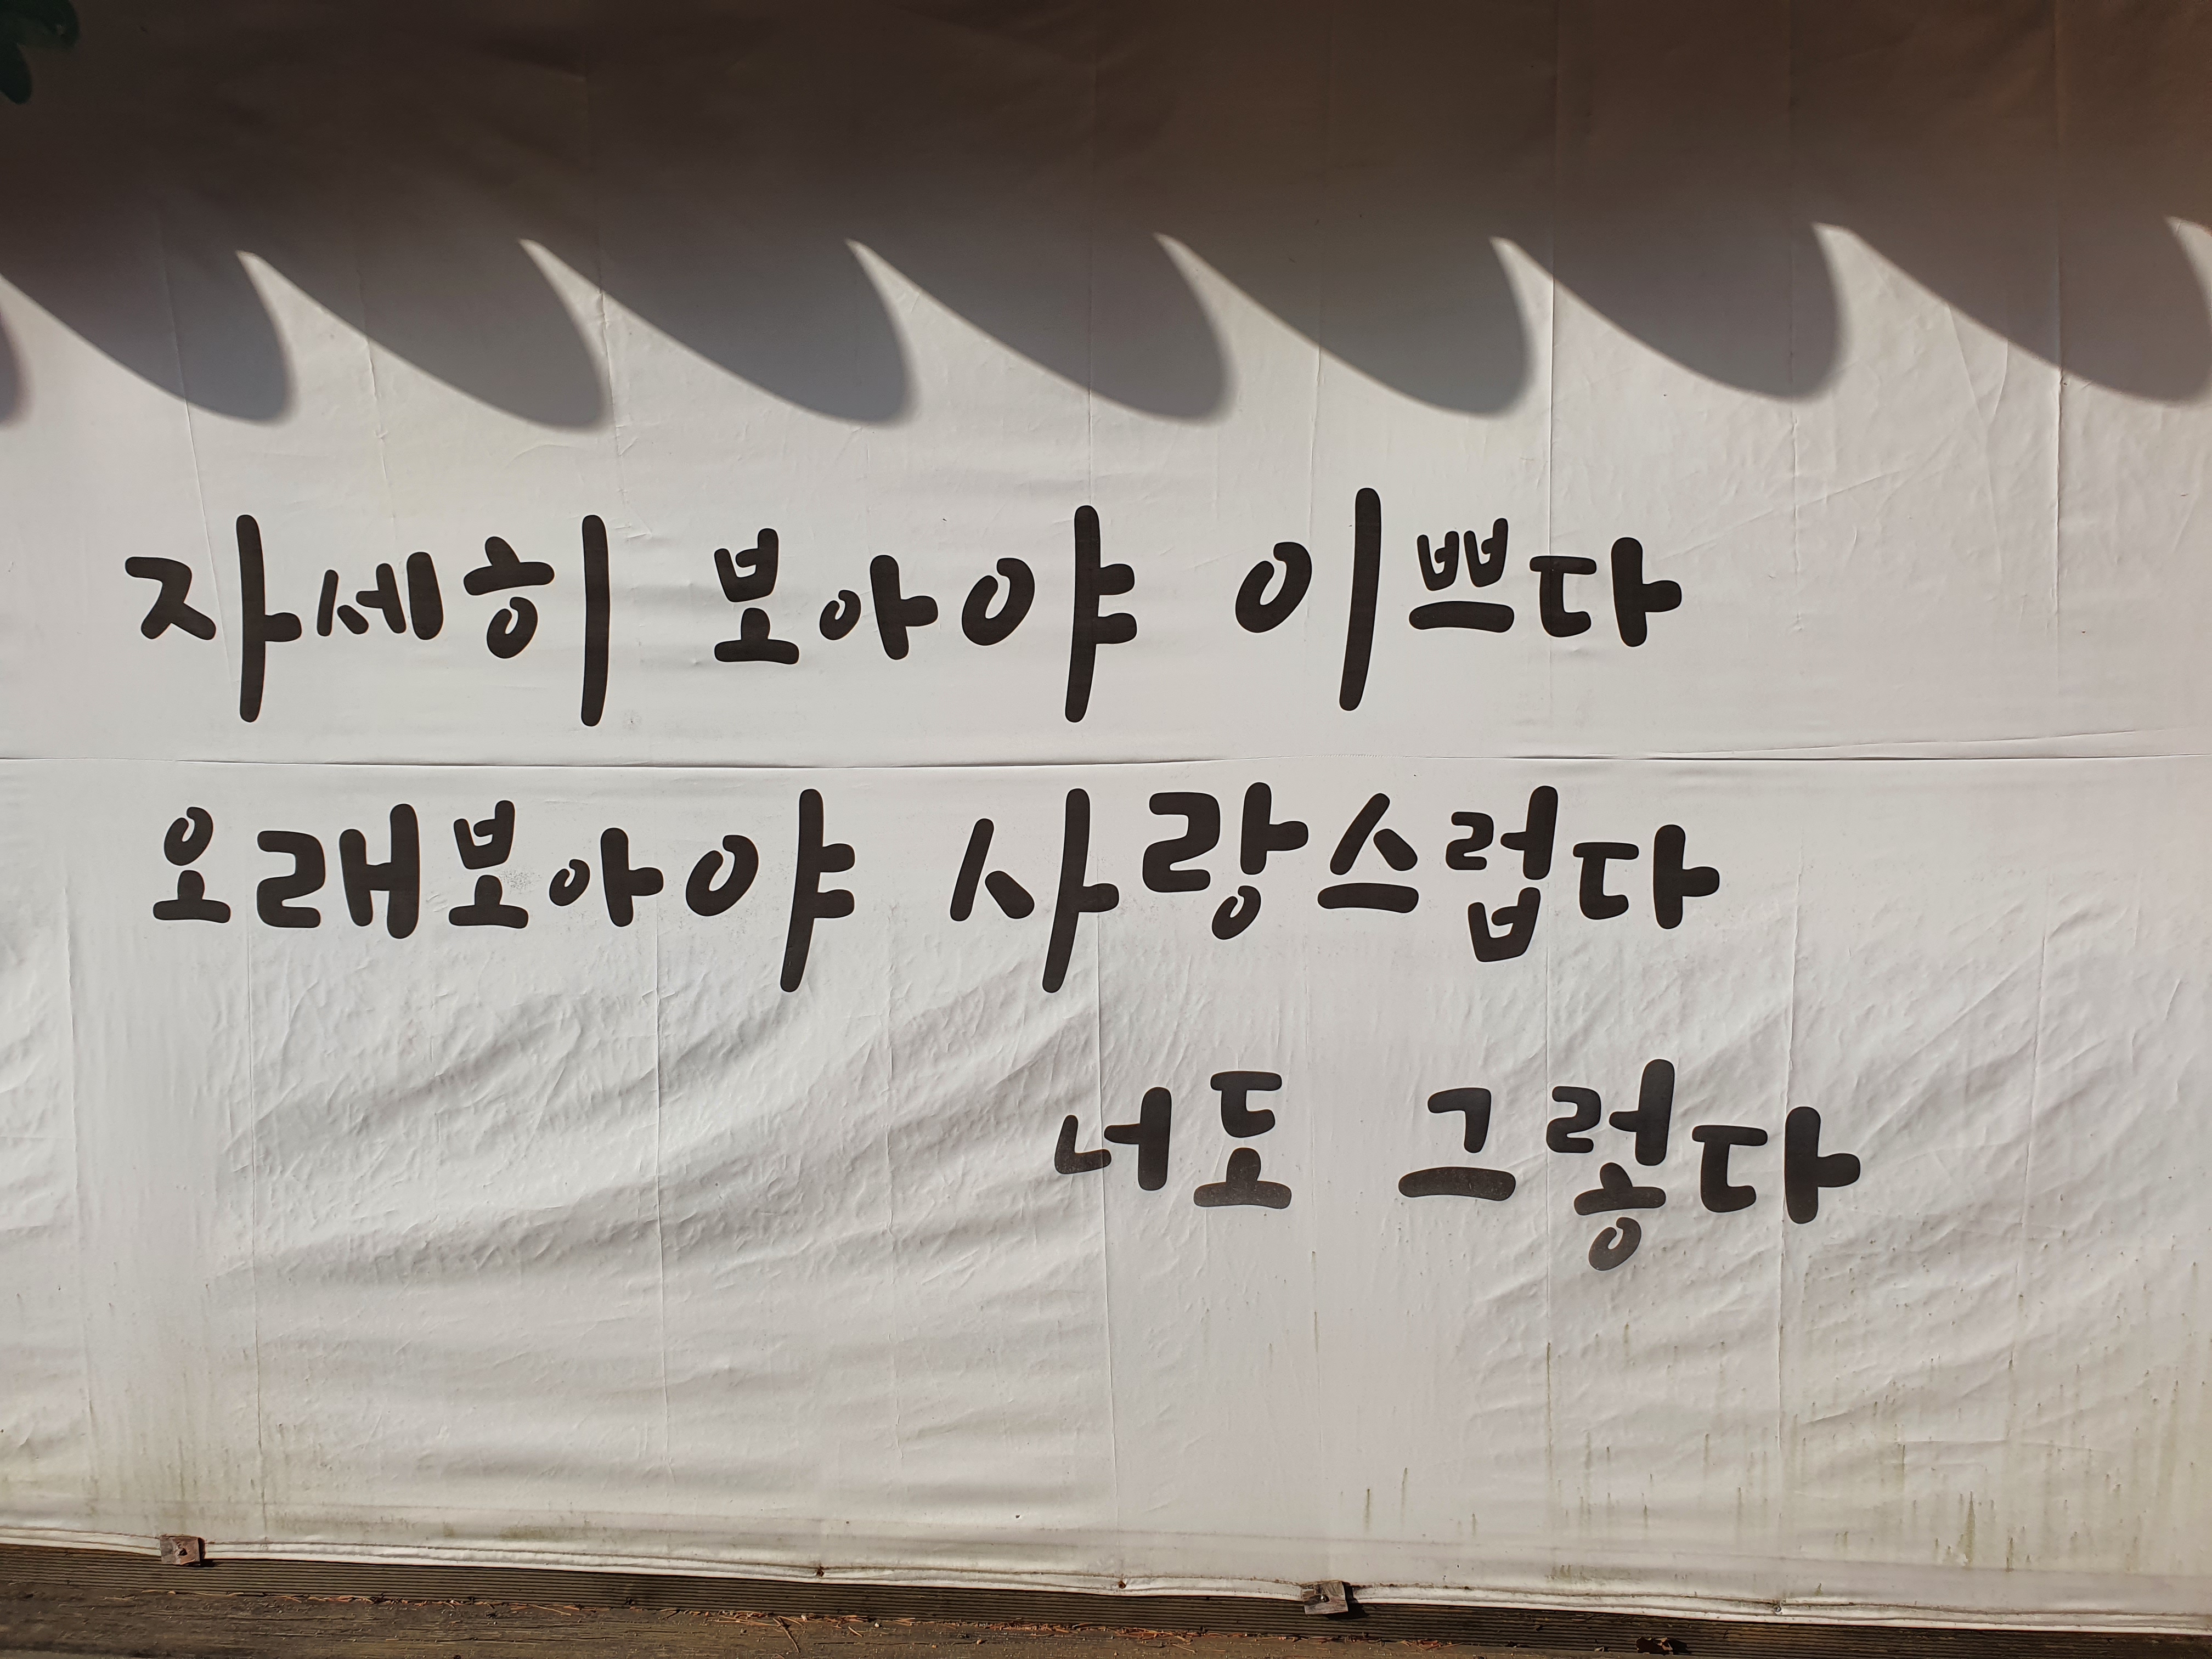 자세히 보아야 이쁘다
오래보아야 사랑스럽다
너도 그렇다